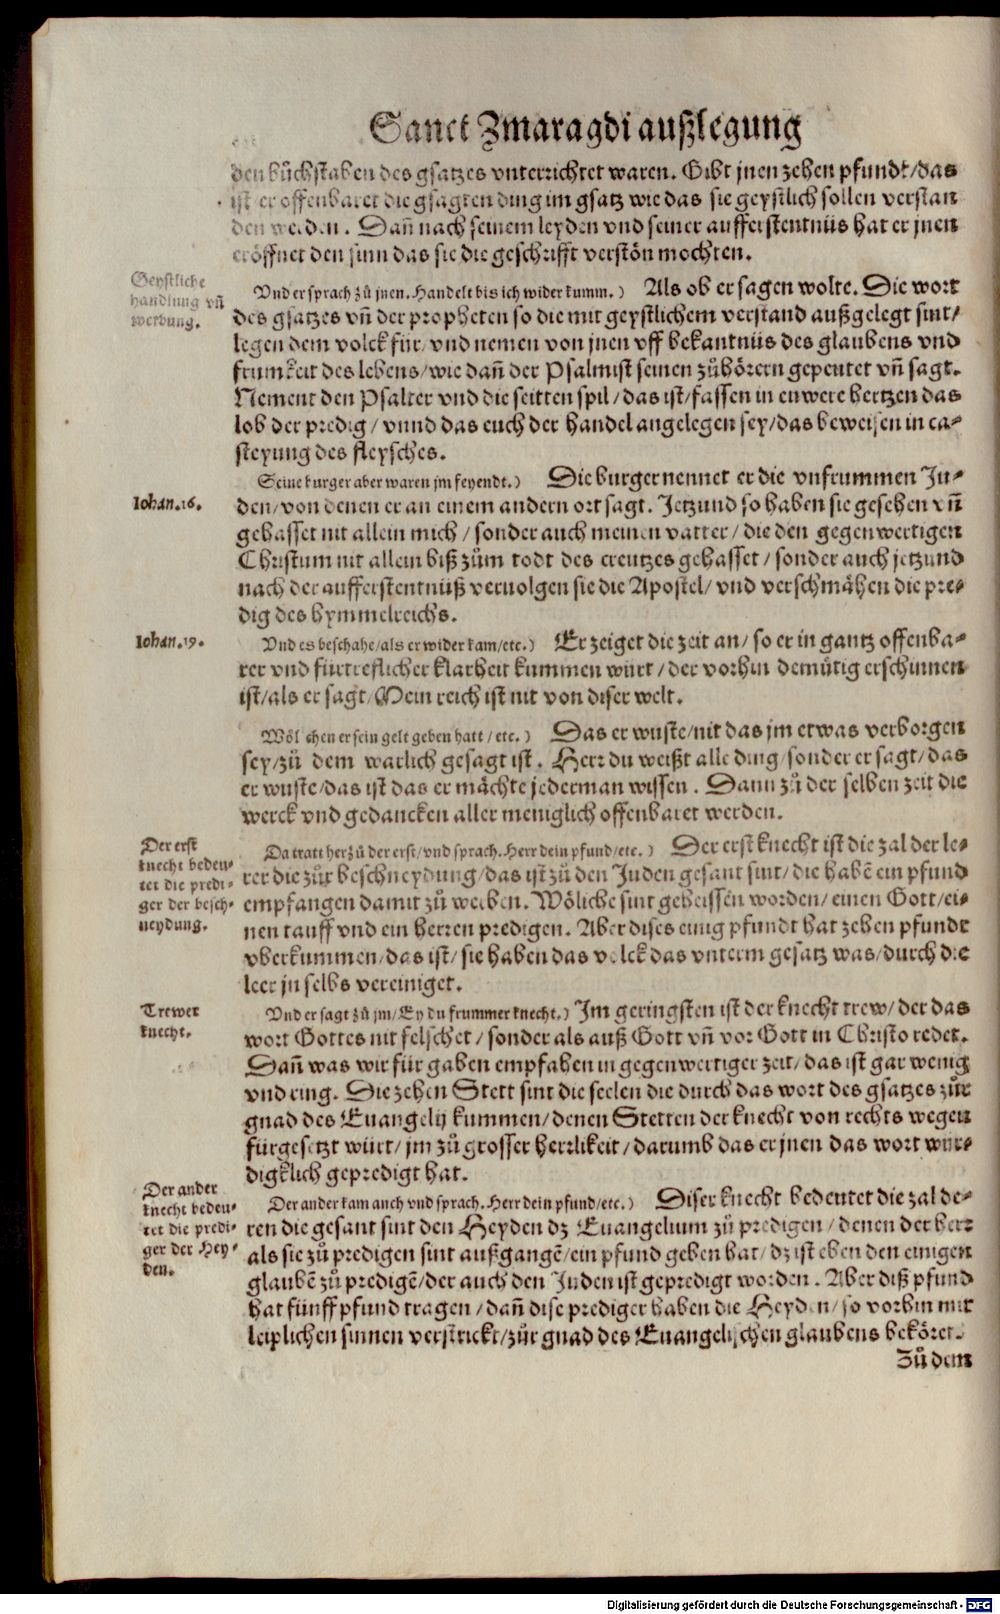 Sanct Zmaragdi außlegung
den bůchstaben des gsatzes vnterrichtet waren. Gibt jnen zehen pfundt/das
ist er offenbaret die gsagten ding im gsatz wie das sie geystlich sollen verstan
den werden. Dañ nach seinem leyden vnd seiner aufferstentnüs hat er jnen
eröffnet den sinn das sie die geschrifft verstön mochten.
Geystliche
handlung vñ
werbung.
Vnd er sprach zů jnen. Handelt bis ich wider kumm.) Als ob er sagen wolte. Die wort
des gsatzes vñ der propheten so die mit geystlichem verstand außgelegt sint/
legen dem volck für/ vnd nemen von jnen vff bekantnüs des glaubens vnd
frumkeit des lebens/ wie dañ der Psalmist seinen zůhörern gepeutet vñ sagt.
Nement den Psalter vnd die seitten spil/ das ist/ fassen in euwere hertzen das
lob der predig/ vnnd das euch der handel angelegen sey/ das beweisen in ca-
steyung des fleysches.
Seine burger aber waren jm feyendt.) Die burger nennet er die vnfrummen Ju-
Iohan.16.
den/ von denen er an einem andern ort sagt. Jetzund so haben sie gesehen vñ
gehasset nit allein mich/ sonder auch meinen vatter/ die den gegenwertigen
Christum nit allein biß zům todt des creutzes gehasset/ sonder auch jetzund
nach der aufferstentnüß veruolgen sie die Apostel/ vnd verschmähen die pre-
dig des hymmelreichs.
Iohan.19.
Vnd es beschahe/als er wider kam/etc.) Er zeiget die zeit an/ so er in gantz offenba-
rer vnd fürtreflicher klarheit kummen würt/ der vorhin demütig erschinnen
ist/als er sagt/ Mein reich ist nit von diser welt.
Wölchen er sein gelt geben hatt/etc.) Das er wuste/nit das jm etwas verborgen
sey/zů dem warlich gesagt ist. Herr du weißt alle ding/sonder er sagt/das
er wuste/das ist das er mächte jederman wissen. Dann zů der selben zeit die
werck vnd gedancken aller meniglich offenbaret werden.
Der erst
knecht bedeu-
tet die predi-
ger der besch-
neydung.
Da tratt herzů der erst/vnd sprach. Herr dein pfund/etc.) Der erst knecht ist die zal der le-
rer die zůr beschneydung/das ist zů den Juden gesant sint/ die habē ein pfund
empfangen damit zů werben. Wöliche sint geheissen worden/ einen Gott/ei-
nen tauff vnd ein herren predigen. Aber dises einig pfundt hat zehen pfundt
vberkummen/das ist/ sie haben das volck das vnterm gesatz was/durch die
leer jn selbs vereiniget.
Trewer
knecht.
Vnd er sagt zů jm/ Ey du frummer knecht.) Im geringsten ist der knecht trew/ der das
wort Gottes nit felschet/ sonder als auß Gott vñ vor Gott in Christo redet.
Dañ was wir für gaben empfahen in gegenwertiger zeit/ das ist gar wenig
vnd ring. Die zehen Stett sint die seelen die durch das wort des gsatzes zůr
gnad des Euangelij kummen/ denen Stetten der knecht von rechts wegen
fürgesetzt würt/ jm zů grosser herrlikeit/ darumb das er jnen das wort wür-
digklich gepredigt hat.
Der ander
knecht bedeu-
tet die predi-
ger der Hey-
den.
Der ander kam auch vnd sprach. Herr dein pfund/etc.) Diser knecht bedeutet die zal de-
ren die gesant sint den Heyden dz Euangelium zů predigen/ denen der herr
als sie zů predigen sint außgangē/ein pfund geben hat/ dz ist eben den einigen
glaubē zů predigē/der auch den Juden ist gepredigt worden. Aber diß pfund
hat fünff pfund tragen/ dañ dise prediger haben die Heyden/ so vorhin mit
leiplichen sinnen verstrickt/zůr gnad des Euangelischen glaubens bekört.
Zů dem
Digitalisierung gefördert durch die Deutsche Forschungsgemeinschaft - DFG